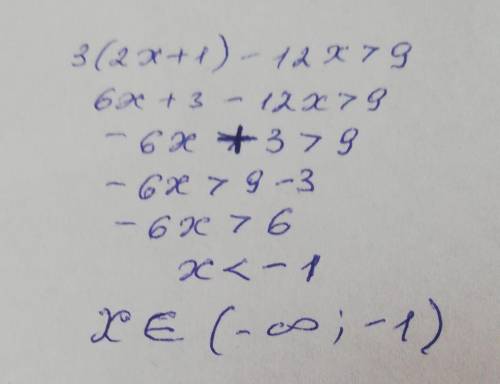 3(2x+1) - 12x > 9
6x + 3 - 12x > 9
- 6x + 3 > 9
- 6x > 9 - 3
- 6x > 6
x < - 1
x ∈ (-∞; -1)